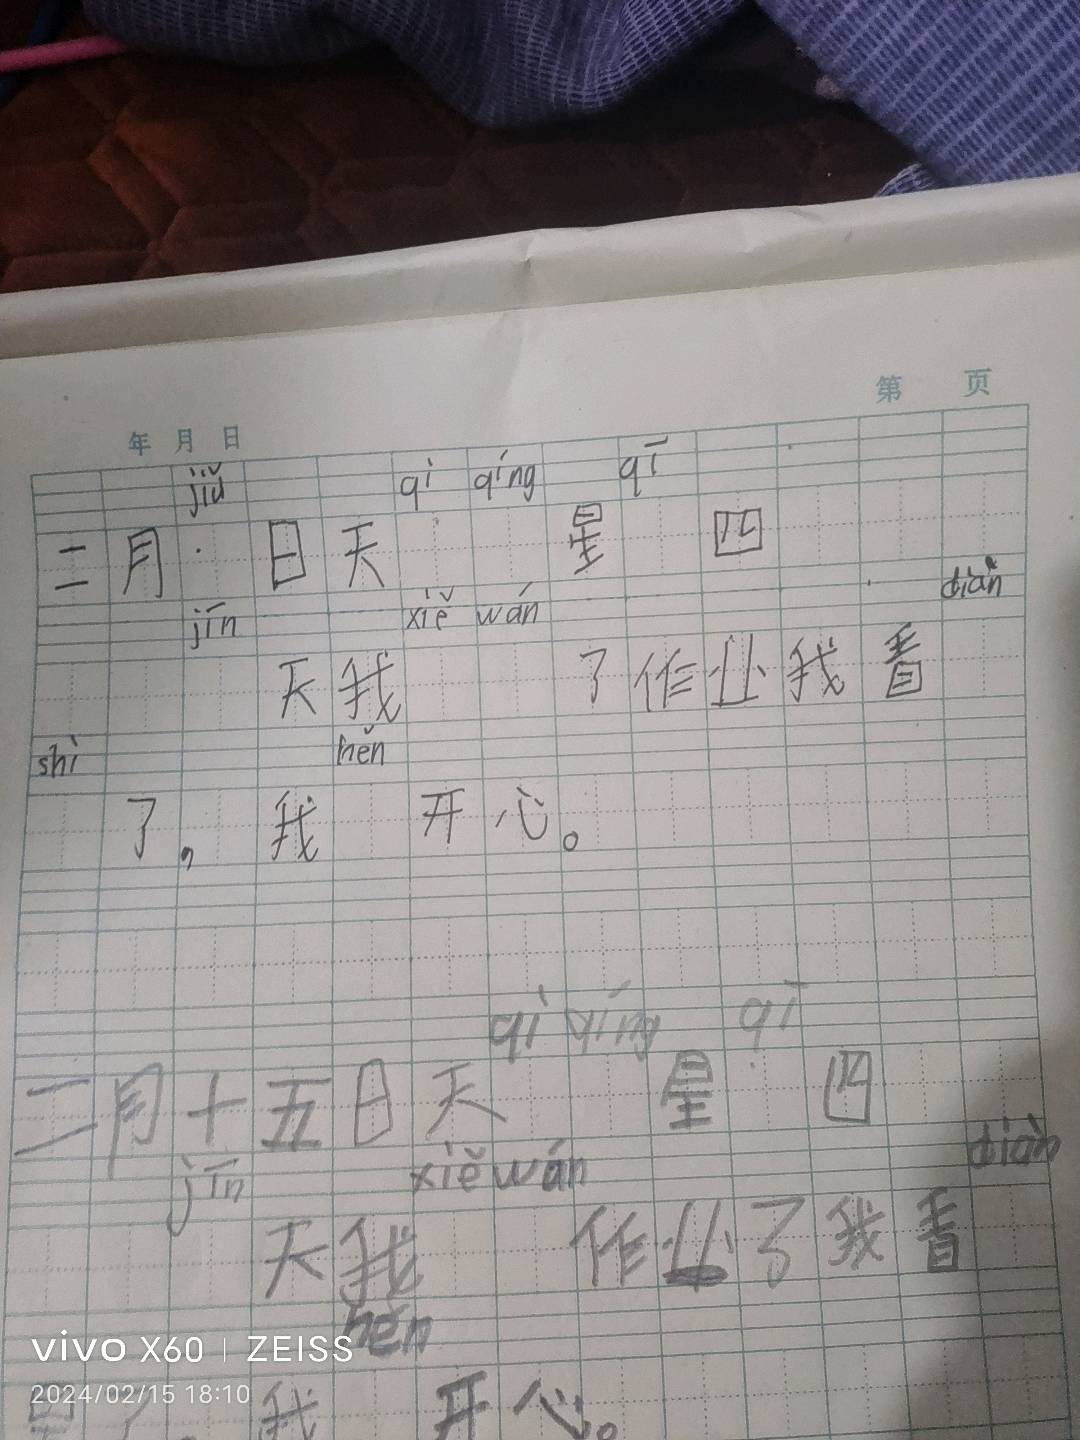 第 页
年 月 日
jiǔ qì qíng qī
二月 日天 星 四
jīn xiě wán diàn
天我 了作业我看
shì hěn
了,我 开心。
qì qíng qī
二月十五日天 星 四
jīn xiě wán diàn
天我 作业了我看
hěn
了 我 开心。
vivo X60 | ZEISS
2024/02/15 18:10